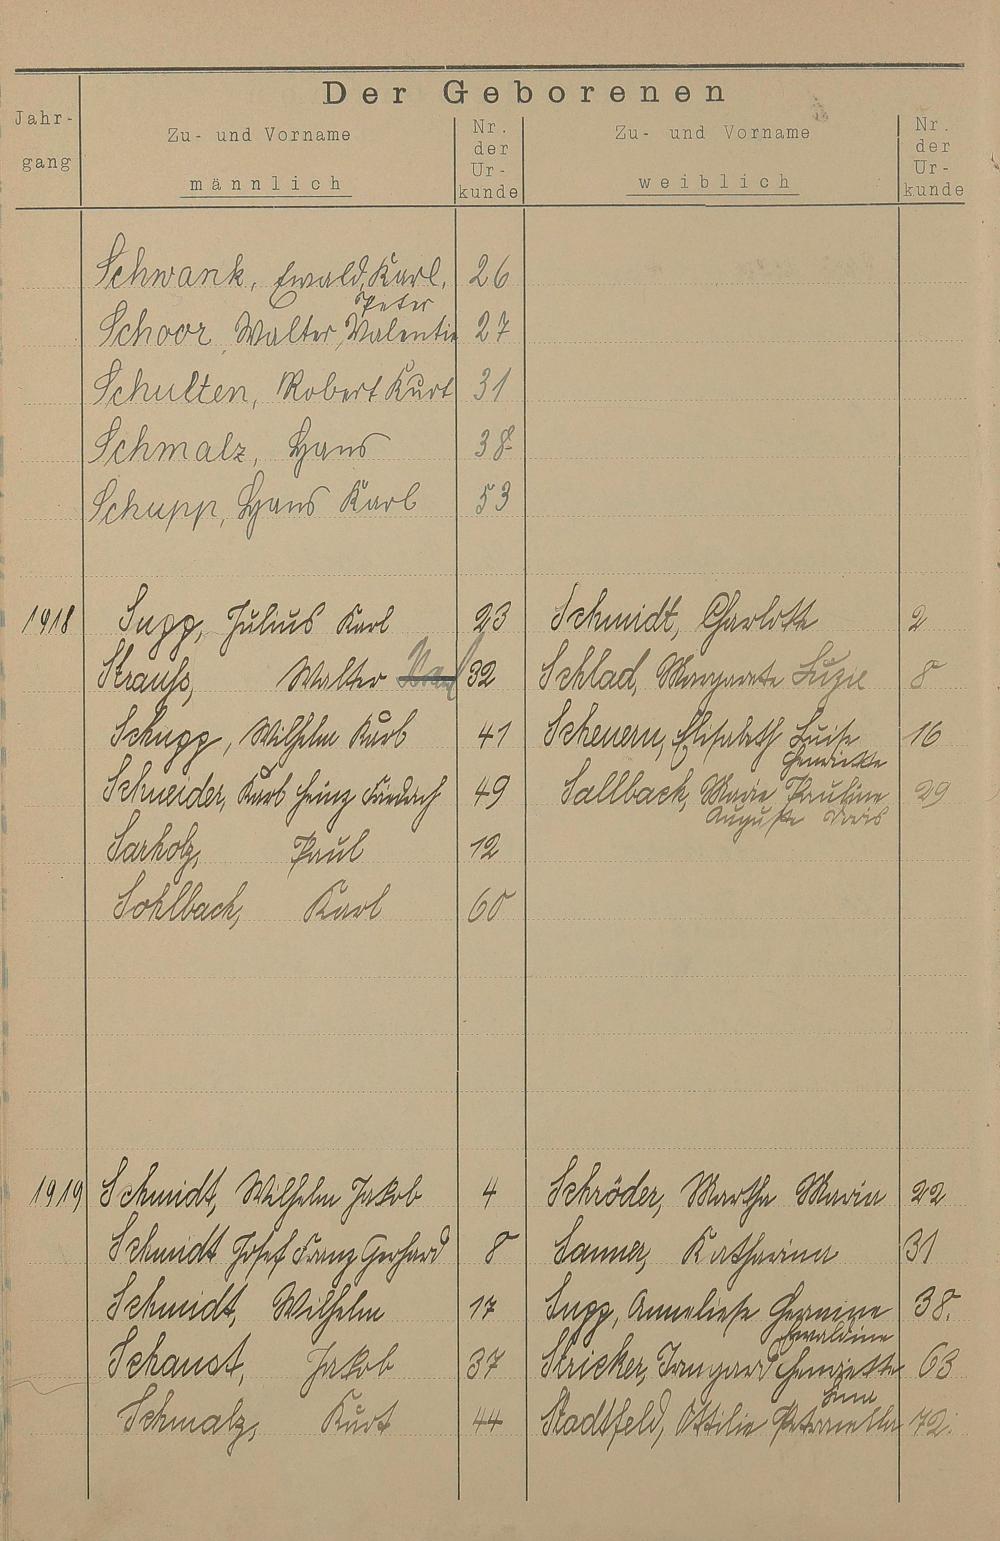 Der Geborenen
Jahr-
gang
Zu- und Vorname
männlich
Nr.
der
Ur-
kunde
Zu- und Vorname
weiblich
Nr.
der
Ur-
kunde
Schwank, Ewald, Karl, 26
Peter
Schoor, Walter, Valentin 27
Schulten, Robert Kurt 31
Schmalz, Hans 38
Schupp, Hans Karl 53
1918 Supp, Julius Karl 23 Schmidt, Charlotte 2
Strauss, Walter 32 Schlad, Margarete Luzie 8
Schupp, Wilhelm Karl 41 Scheuern, Elisabeth Luise 16
Henriette
Schneider, Karl Heinz Friedrich 49 Sallbach, Marie Pauline 29
Auguste Doris
Sarholz, Paul 12
Sohlbach, Karl 60
1919 Schmidt, Wilhelm Jakob 4 Schröder, Martha Maria 22
Schmidt Josef Franz Gerhard 8 Sanner, Katharina 31
Schmidt, Wilhelm 17 Supp, Anneliese 38.
Ewaldine
Schaust, Jakob 37 Stricker, Irmgard Henriette 63
Schmalz, Kurt 44 Stadtfeld, Ottilie Petronella 72.